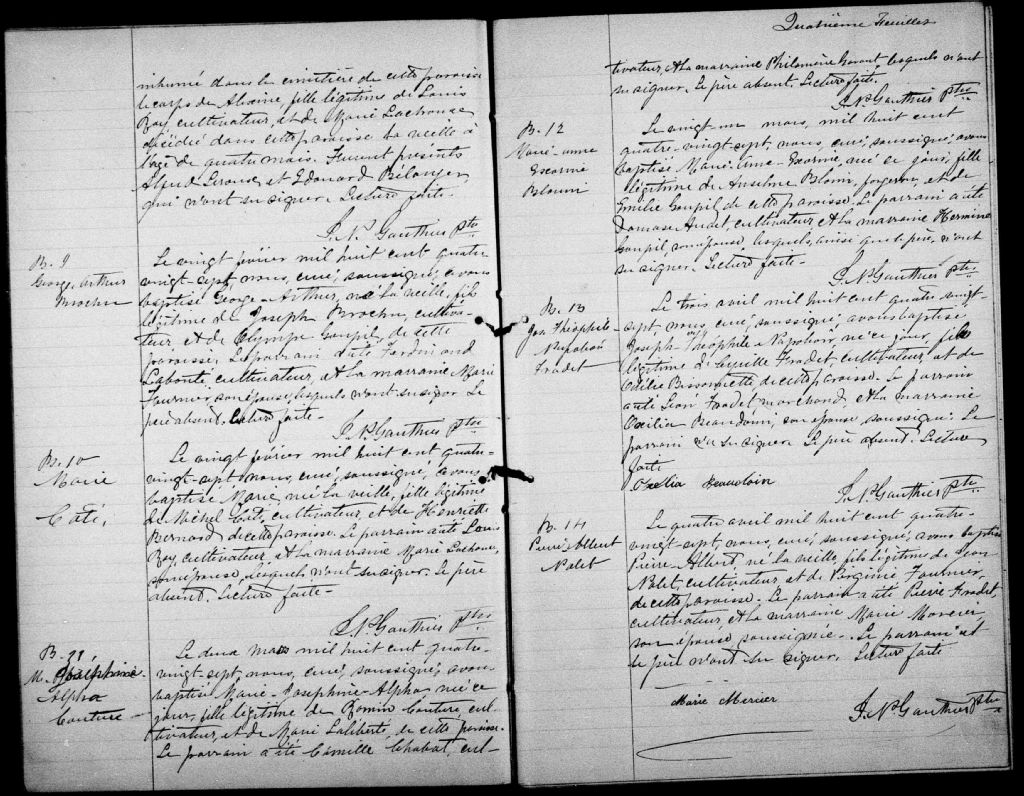 inhumé dans le cimetière de cette paroisse
le corps de fille légitime de Louis
Roy cultivateur, et de Marie
décédé dans cette paroisse la veille à
l'age de quatre mois. Furent présents
Alfred et Edouard Bélanger
qui n'ont su signer. Lecture faite
J. N. Gauthier Ptre
B. 9
George, Arthur
Brochu
Le vingt février mil huit cent quatre
vingt-sept, nous, curé, soussigné, avons
baptisé George-Arthur, né la veille, fils
légitime de Joseph Brochu, cultiva-
teur et de Olympe Goupil, de cette
paroisse. Le parrain a été Ferdinand
Labonté, cultivateur, et la marraine Marie
Fournier son épouse, lesquels n'ont su signer. Le
père absent. Lecture faite-
J. N. Gauthier Ptre
B. 10
Marie
Coté,
Le vingt février mil huit cent quatre-
vingt-sept, nous, curé, soussigné, avons
baptisé Marie, née la veille, fille légitime
de Michel Coté, cultivateur, et de Henriette
Bernard de cette paroisse. Le parrain a été Louis
Roy, cultivateur, et la marraine Marie
son épouse, lesquels n'ont su signer. Le père
absent. Lecture faite-
J. N. Gauthier Ptre
B. 11
M. Joséphine-
Alpha
Couture
Le deux mars mil huit cent quatre-
vingt-sept, nous, curé, soussigné, avons
baptisé Marie-Josephine-Alpha, née ce
jour, fille légitime de Romin Couture, cul-
tivateur, et de Marie Laliberté, de cette paroisse.
Le parrain a été Camille Chabot, cul-
Quatrième Feuillet
tivateur, et la marraine Philomène lesquels n'ont
su signer. Le père absent. Lecture faite.
J. N. Gauthier Ptre
B. 12
Marie-Anne
Exorine
Blouin
Le vingt-un mars, mil huit cent
quatre-vingt-sept, nous, curé, soussigné, avons
baptisé Marie-Anne-Exorine, née ce jour, fille
légitime de Anselme Blouin, forgeron, et de
Emilie Goupil, de cette paroisse. Le parrain a été
Damase Audet, cultivateur, et la marraine Hermine
Goupil, son épouse, lesquels, ainsi que le père, n'ont
su signer. Lecture faite-
J. N. Gauthier Ptre
B. 13
Jos. Théophile-
Napoléon
Fradet
Le trois avril mil huit cent quatre vingt-
sept, nous, curé, soussigné, avons baptisé
Joseph-Théophile-Napoléon, né ce jour, fils
légitime d'Cyrille Fradet, cultivateur, et de
Odélie Bissonnette de cette paroisse. Le parrain
a été Léon Fradet marchand et la marraine
Oxélia Beaudoin, son épouse soussignée. Le
parrain n'a su signer. Le père absent. Lecture
faite
Oxelia Beaudoin
J. N. Gauthier Ptre
B. 14
Pierre, Albert
Nolet
Le quatre avril mil huit cent quatre-
vingt-sept, nous, curé, soussigné, avons baptisé
Pierre-Albert, né la veille, fils légitime de Léon
Nolet, cultivateur, et de Virginie Fournier,
de cette paroisse. Le parrain a été Pierre Fradet,
cultivateur, et la marraine Marie Mercier,
son épouse, soussignée. Le parrain et
le père n'ont su signer. Lecture faite
Marie Mercier
J. N. Gauthier Ptre